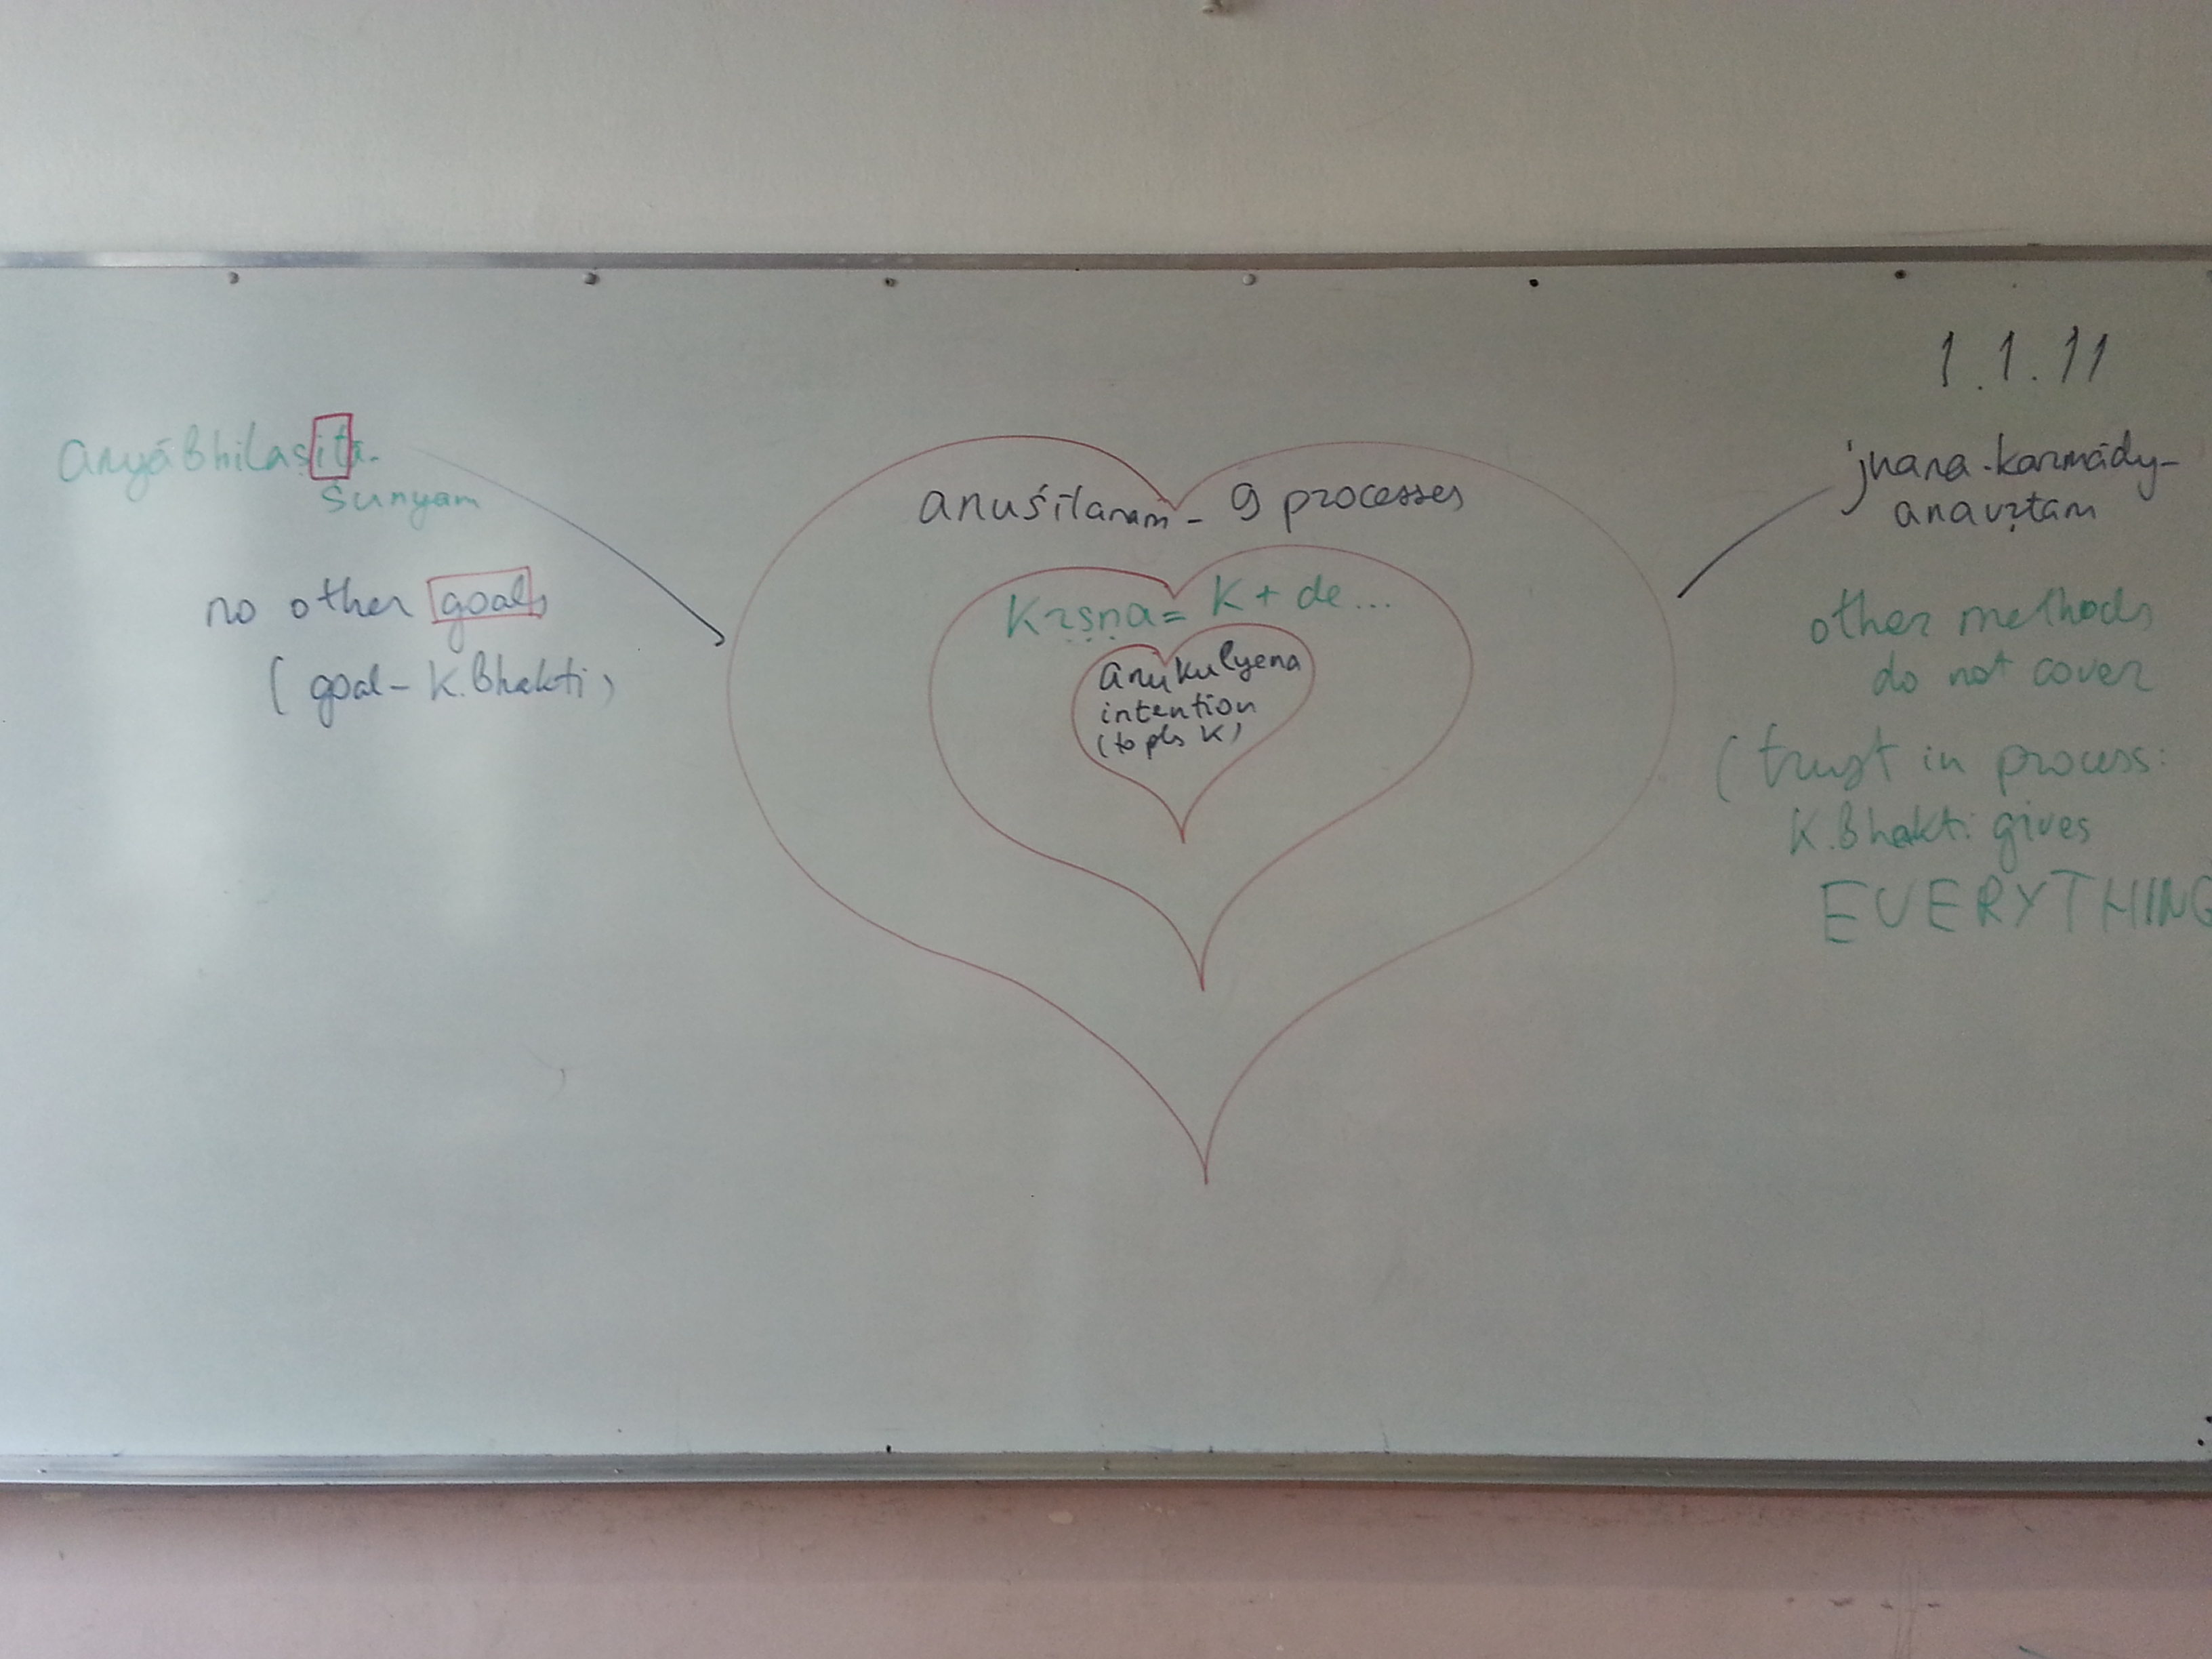 1.1.11
anyābhilaṣitā-
śunyam
no other goals
(goal - K.Bhakti)
anuśīlanam - 9 processes
Kṛṣṇa = K + de...
anukulyena
intention
(to pls K)
jnana-karmādy-
anavṛtam
other methods
do not cover
(trust in process:
K.Bhakti gives
EVERYTHING